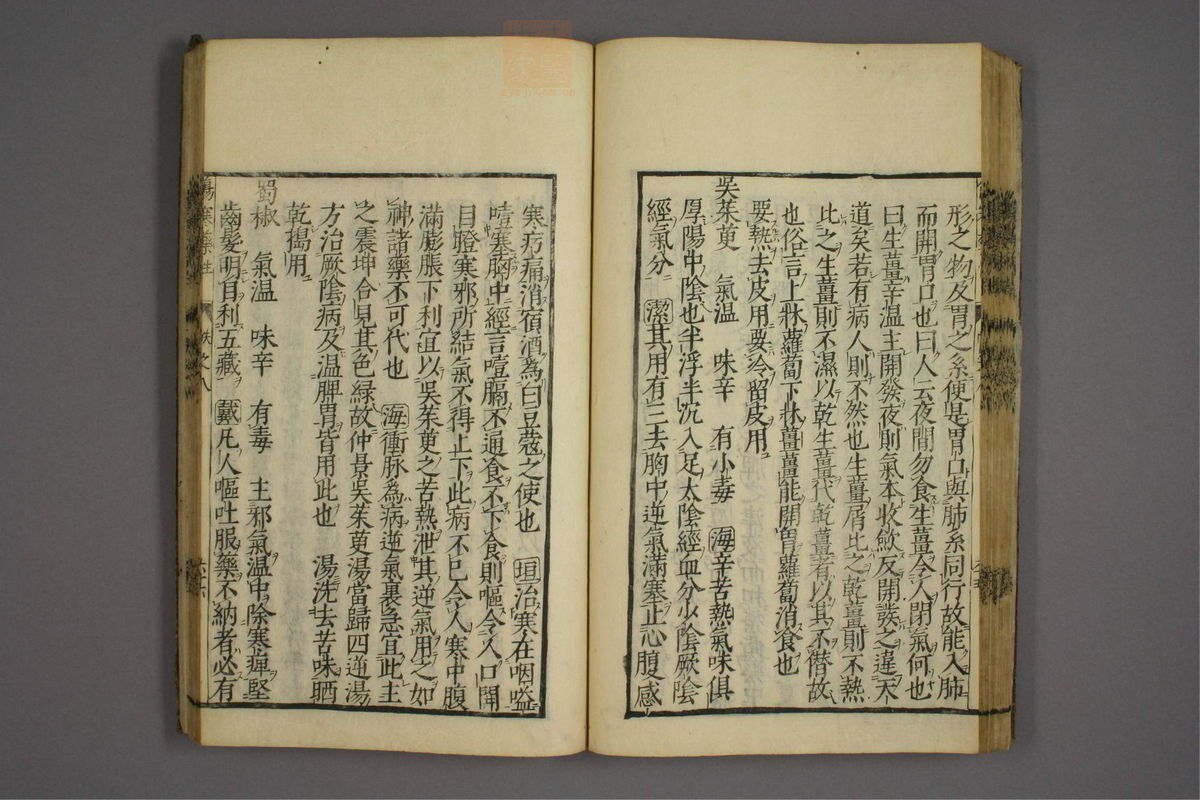 形之物及胃之系便是胃口與肺系同行故能入肺
而開胃口也曰人云夜間勿食生薑令人閉氣何也
曰生薑辛温主開發夜則氣本收斂反開發之違天
道矣若有病人則不然也生薑屑比之乾薑則不熱
比之生薑則不濕以乾生薑代乾薑者以其不僭故
也俗言上牀蘿蔔下牀薑薑能開胃蘿蔔消食也
要熱去皮用要冷留皮用
吳茱萸 氣温 味辛 有小毒 海辛苦熱氣味俱
厚陽中陰也半浮半沉入足太陰經血分少陰厥陰
經氣分 潔其用有三去胸中逆氣滿塞止心腹感
寒㽲痛消宿酒為白豆蔻之使也 垣治寒在咽嗌
噎塞胸中經言噎膈不通食不下食則嘔令人口開
目瞪寒邪所結氣不得上下此病不已令人寒中腹
滿膨脹下利宜以吳茱萸之苦熱泄其逆氣用之如
神諸藥不可代也 海衝脉為病逆氣裏急宜此主
之震坤合見其色緑故仲景吳茱萸湯當歸四逆湯
方治厥陰病及温脾胃皆用此也 湯洗去苦味晒
乾搗用
蜀椒 氣温 味辛 有毒 主邪氣温中除寒痺堅
齒髮明目利五藏 戴凡人嘔吐服藥不納者必有
傷寒藥性